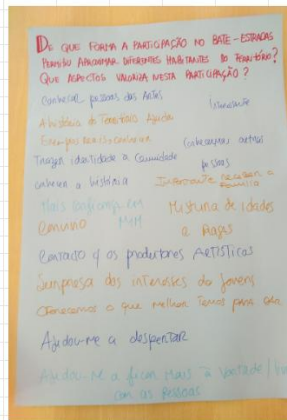 DE QUE FORMA A PARTICIPAÇÃO NO BATE-ESTRADAS
PERMITIU APROXIMAR DIFERENTES HABITANTES DO TERRITÓRIO?
QUE ASPECTOS VALORIZA NESTA PARTICIPAÇÃO?
Conhecer pessoas das Artes
Interessante
A história do Território Ajuda
Conhecemos outras
pessoas
Trazer identidade à Comunidade
conhecer a história
Importante receber a
Família
Mais confiança em
MIM
Caminho
Mistura de idades
e Raças
Contacto c/ os produtores ARTÍSTICOS
Surpresa dos interesses do Jovens
Oferecemos o que melhor Temos para
Ajudou-me a despertar
Ajudou-me a ficar Mais à Vontade
com as Pessoas